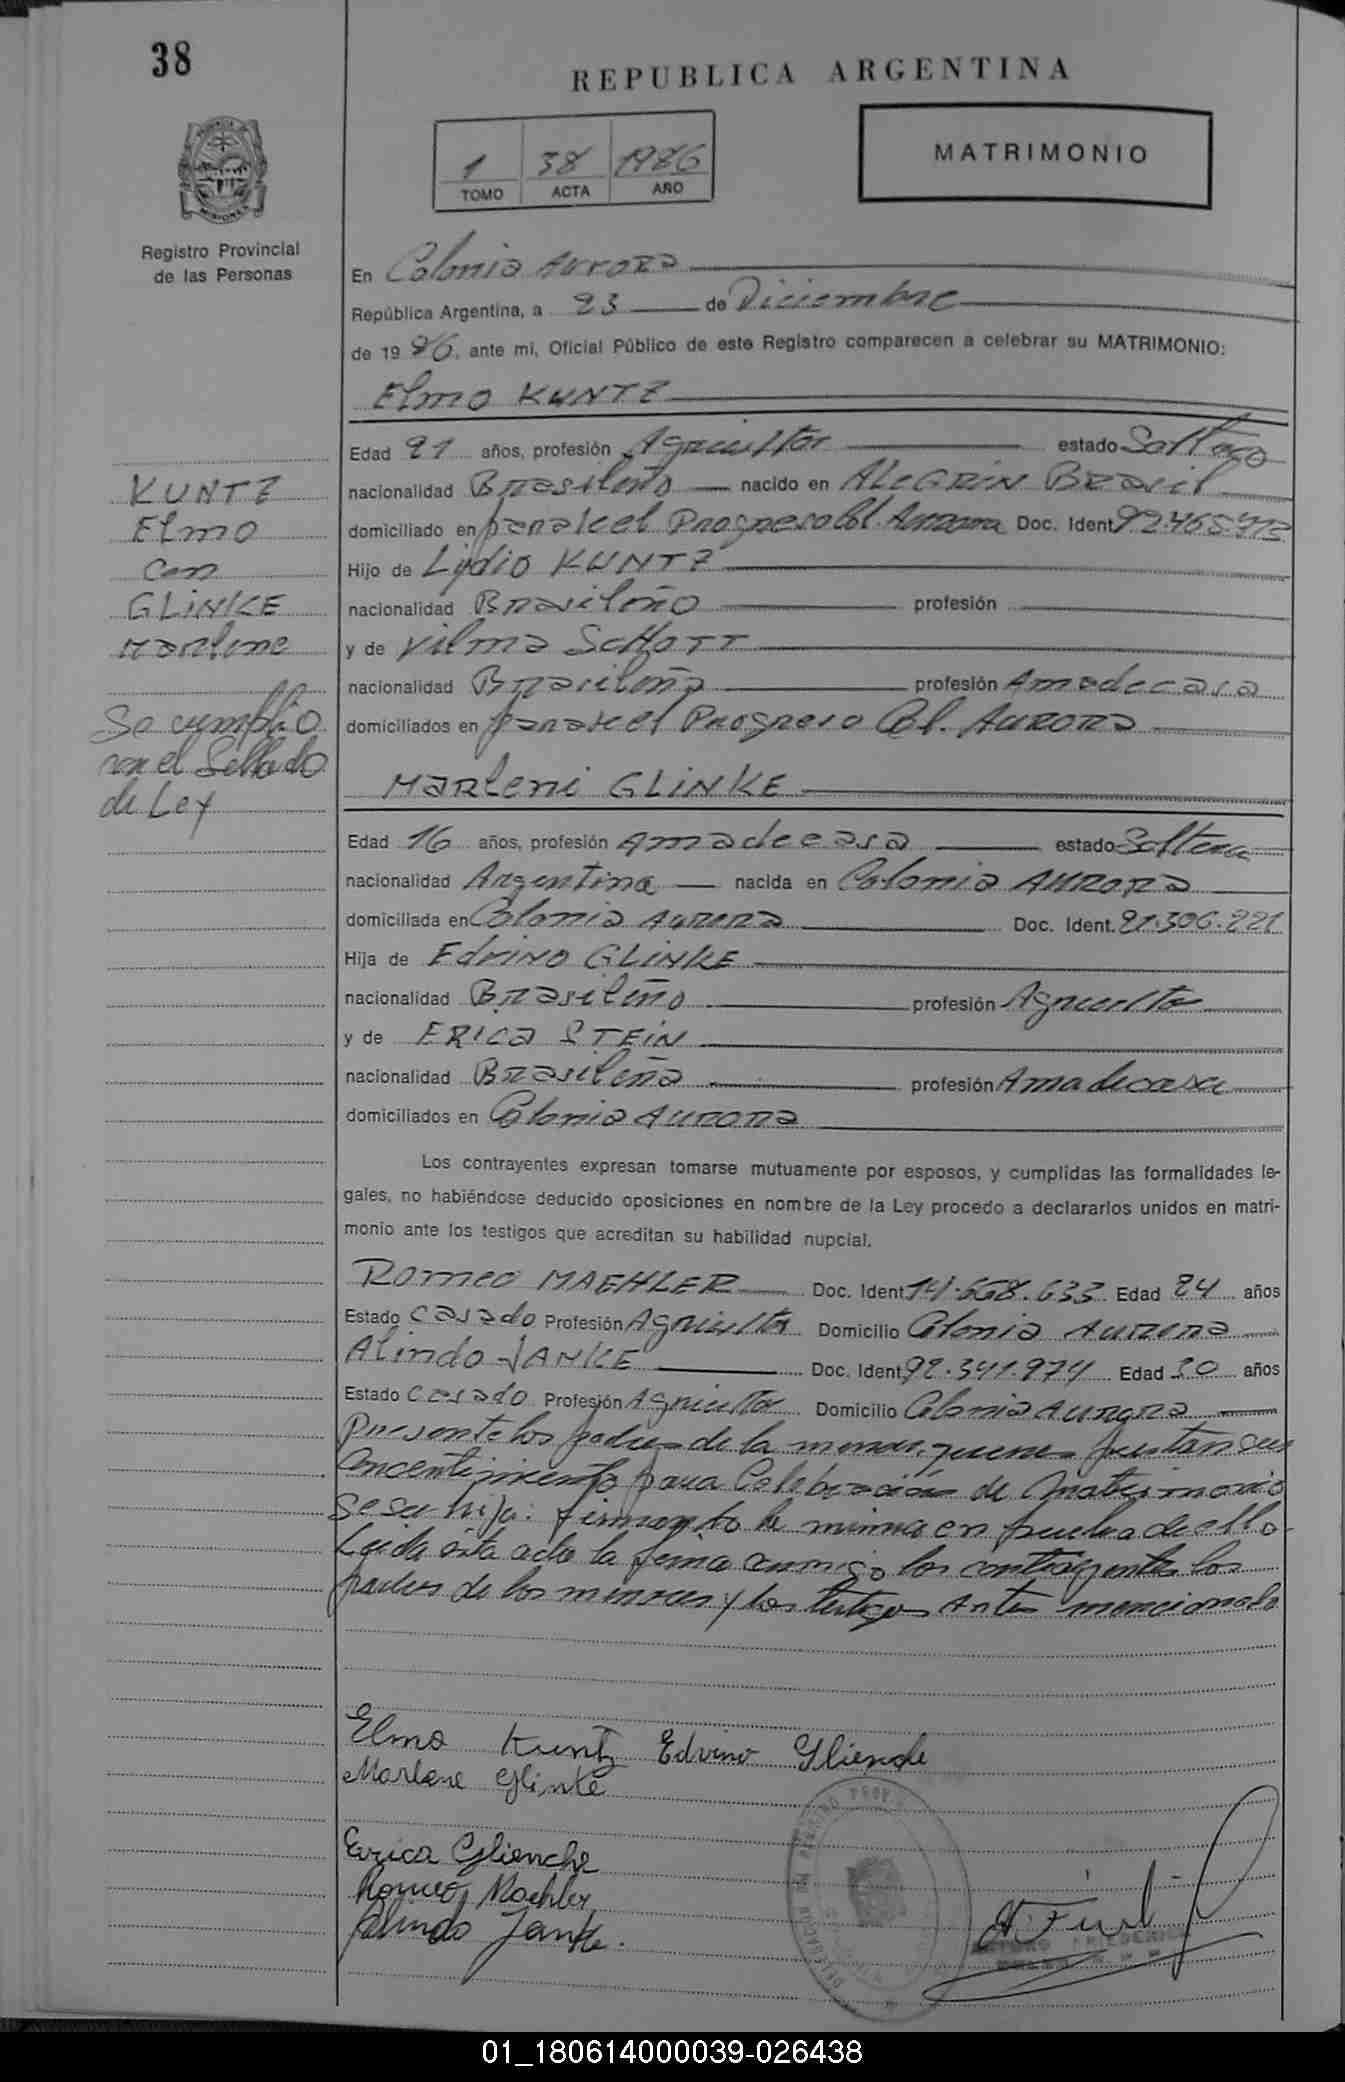 38
REPUBLICA ARGENTINA
1 38 1986
TOMO ACTA AÑO
MATRIMONIO
PROVINCIA DE
MISIONES
Registro Provincial
de las Personas
En Colonia Aurora
República Argentina, a 23 de Diciembre
de 19 86, ante mi, Oficial Público de este Registro comparecen a celebrar su MATRIMONIO:
Elmo KUNTZ
Edad 21 años, profesión Agricultor estado Soltero
nacionalidad Brasileño nacido en ALEGRIN Brasil
domiciliado en paraje el Progreso Col. Aurora Doc. Ident. 92.465.973
Hijo de Lydio KUNTZ
nacionalidad Brasileño profesión
y de Vilma SCHOTT
nacionalidad Brasileña profesión Amadecasa
domiciliados en paraje el Progreso Col. AURORA
Marleni GLINKE
Edad 16 años, profesión Amadecasa estado Soltera
nacionalidad Argentina nacida en Colonia AURORA
domiciliada en Colonia Aurora Doc. Ident. 21.306.221
Hija de Edvino GLINKE
nacionalidad Brasileño profesión Agricultor
y de ERICA STEIN
nacionalidad Brasileña profesión Amadecasa
domiciliados en Colonia AURORA
Los contrayentes expresan tomarse mutuamente por esposos, y cumplidas las formalidades le-
gales, no habiéndose deducido oposiciones en nombre de la Ley procedo a declararlos unidos en matri-
monio ante los testigos que acreditan su habilidad nupcial.
Romeo MAEHLER Doc. Ident. 14.668.633 Edad 24 años
Estado Casado Profesión Agricultor Domicilio Colonia Aurora
Alindo JANKE Doc. Ident. 92.341.974 Edad 30 años
Estado Casado Profesión Agricultor Domicilio Colonia Aurora
Presente los padres de la menor, quienes prestan su
concentimiento para Celebración de Matrimonio
de su hija: firmando la misma en prueba de ello
Leida esta acta la firma conmigo los contrayentes los
padres de los menores y los testigos Antes mencionado
KUNTZ
Elmo
Con
GLINKE
Marlene
Se cumplio
con el Sellado
de Ley
Elmo Kuntz Edvino Glienche
Marlene Glinke
Erica Glienche
Romeo Maehler
Alindo Janke.
01_180614000039-026438